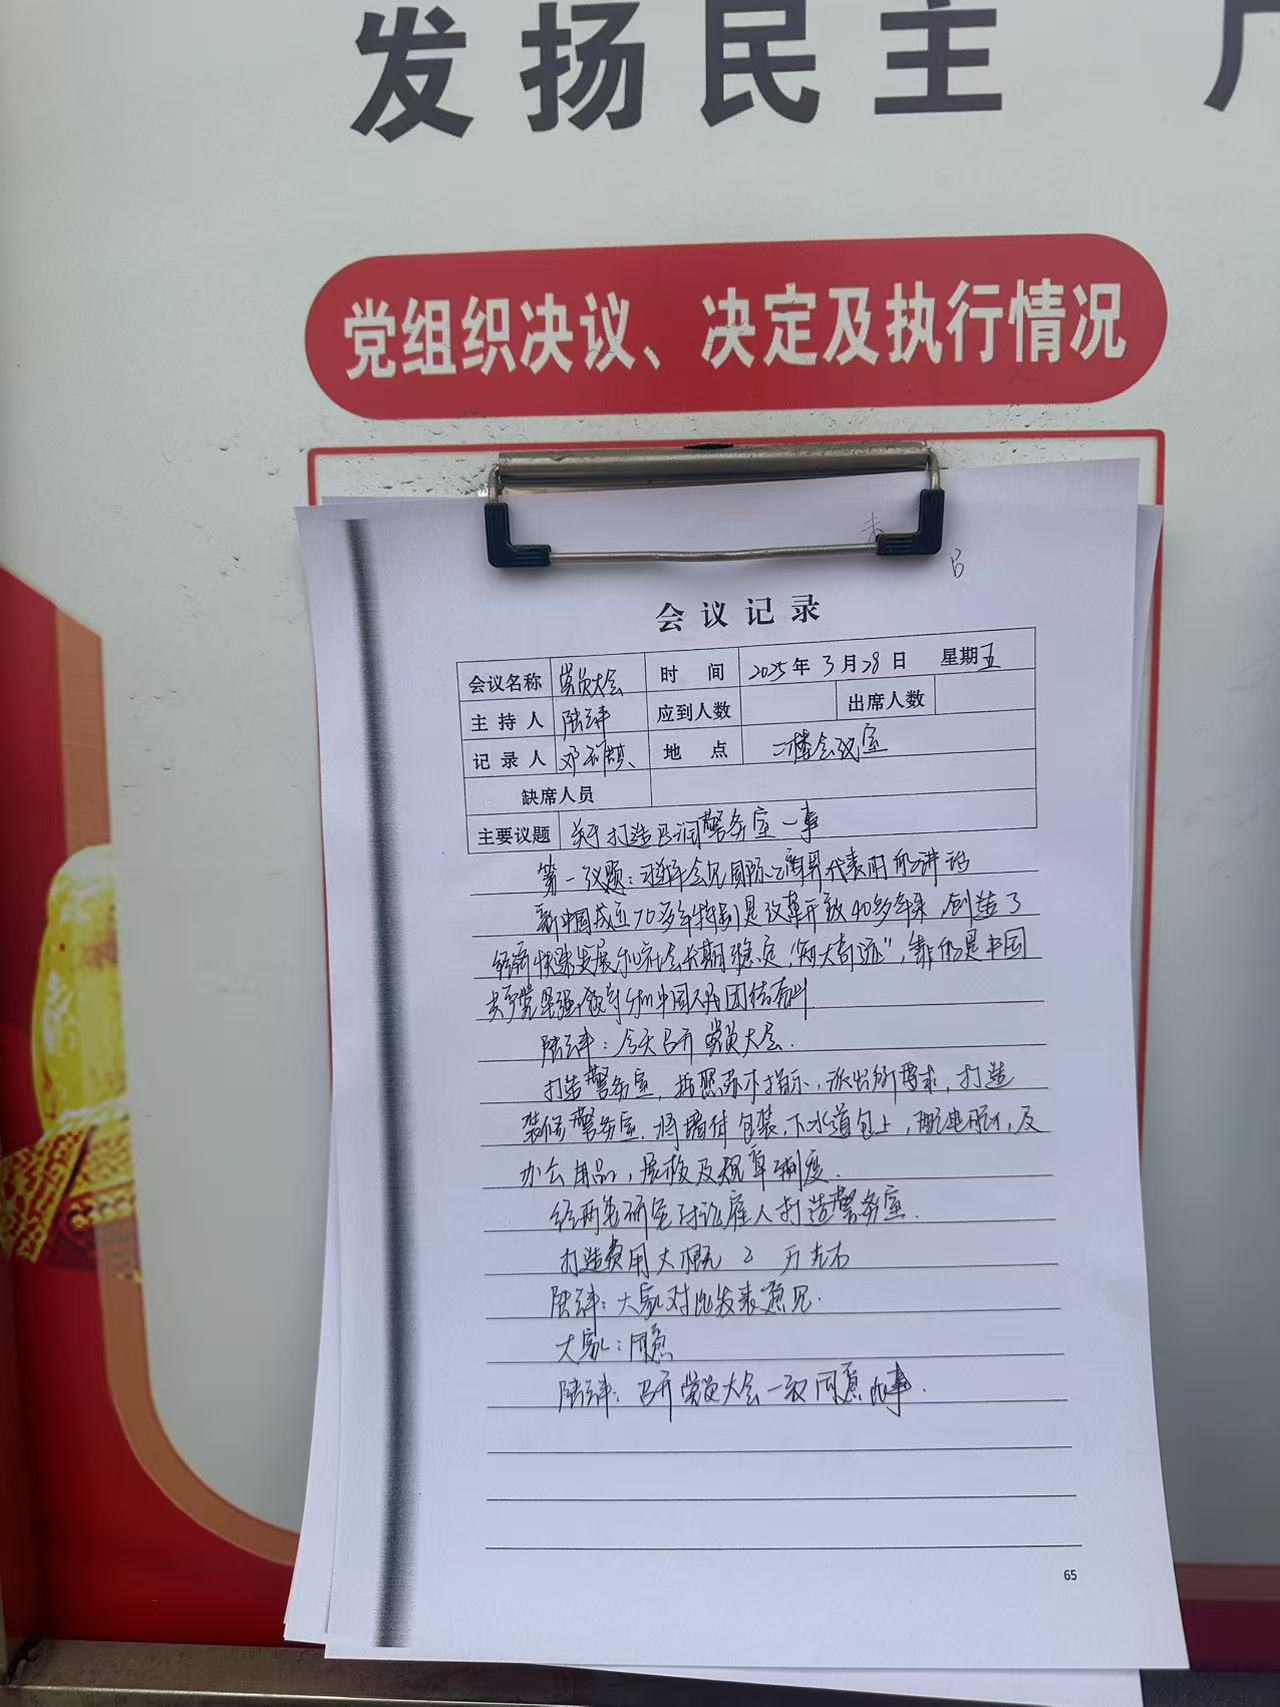 发扬民主
党组织决议、决定及执行情况
会议记录
会议名称 党员大会 时间 2025年3月28日 星期五
主持人 陆 应到人数 出席人数
记录人 邓 地点 二楼会议室
缺席人员
主要议题 关于打造吕润警务室一事
第一议题：习近平会见国际工商界代表时的讲话
新中国成立70多年特别是改革开放40多年来，创造了
经济快速发展和社会长期稳定"两大奇迹"，靠的是中国
共产党坚强领导和中国人民团结奋斗
陆：今天召开党员大会.
打造警务室，按照指示，派出所要求，打造
装修警务室.将墙体包装，下水道包上，配电脑，及
办公用品，展板及规章制度.
经两委研究讨论雇人打造警务室.
打造费用大概2万左右
陆：大家对此发表意见.
大家：同意
陆：召开党员大会一致同意此事.
65